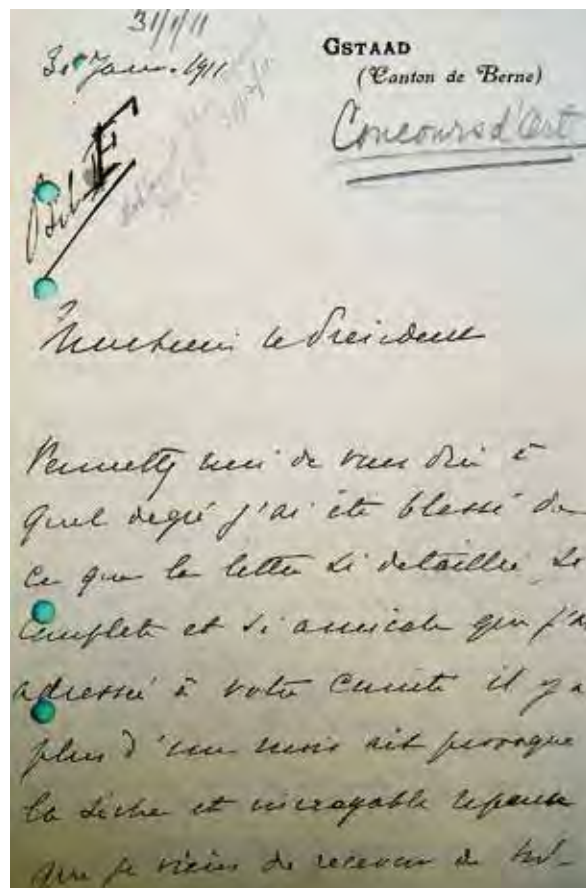 31/1/11
31 Janv. 1911
GSTAAD
(Canton de Berne)
Concours d'Art
Monsieur le Président
Permettez moi de vous dire à
quel degré j'ai été blessé de
ce que la lettre si détaillée si
complète et si amicale que j'ai
adressée à votre Comité il y a
plus d'un mois ait provoqué
la sèche et incroyable réponse
que je viens de recevoir de